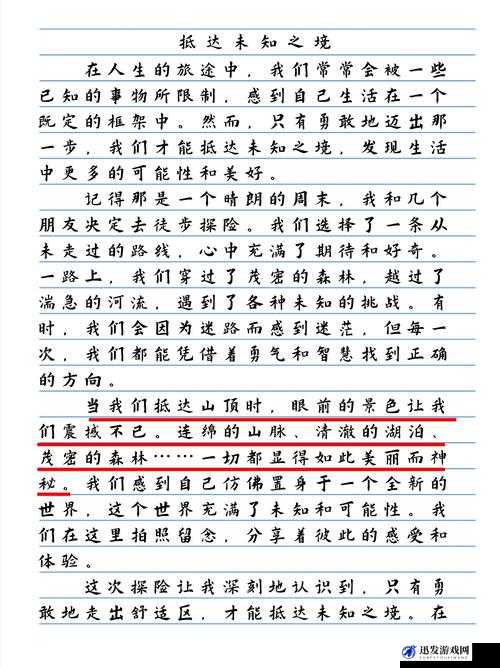 抵达未知之境
在人生的旅途中，我们常常会被一些
已知的事物所限制，感到自己生活在一个
既定的框架中。然而，只有勇敢地迈出那
一步，我们才能抵达未知之境，发现生活
中更多的可能性和美好。
记得那是一个晴朗的周末，我和几个
朋友决定去徒步探险。我们选择了一条从
未走过的路线，心中充满了期待和好奇。
一路上，我们穿过了茂密的森林，越过了
湍急的河流，遇到了各种未知的挑战。有
时，我们会因为迷路而感到迷茫，但每一
次，我们都能凭借着勇气和智慧找到正确
的方向。
当我们抵达山顶时，眼前的景色让我
们震撼不已。连绵的山脉、清澈的湖泊、
茂密的森林……一切都显得如此美丽而神
秘。我们感到自己仿佛置身于一个全新的
世界，这个世界充满了未知和可能性。我
们在这里拍照留念，分享着彼此的感受和
体验。
这次探险让我深刻地认识到，只有勇
敢地走出舒适区，才能抵达未知之境。在
迅发游戏网